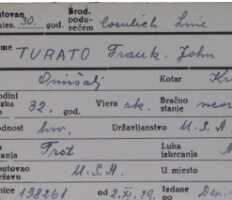 utovao
mjes. 30. god. Brod. poduzećem Cosulich Line
me TURATO Frank. John
Omišalj Kotar K
odini
32. god. Vjera rk. Bračno stanje
odnost hrv. Državljanstvo U.S.A
Trst Luka iskrcanja
putovao državu U.S.A. U mjesto
nice 138261 od 2.XI.29. Izdane po